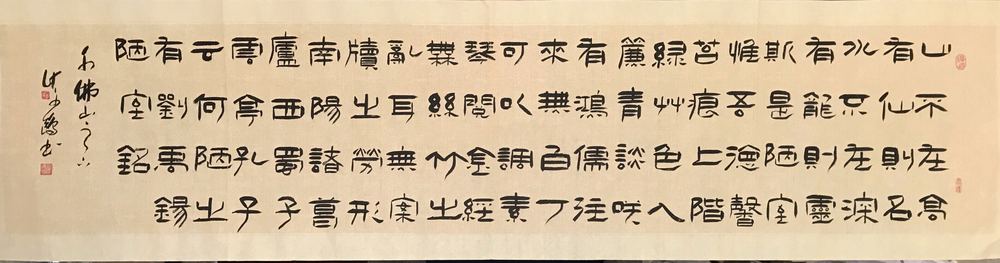 山不在高
有仙則名
水不在深
有龍則靈
斯是陋室
惟吾德馨
苔痕上階
綠艸色入
簾青談咲
有鴻儒往
來無白丁
可以調素
琴閱金經
無絲竹之
亂耳無案
牘之勞形
南陽諸葛
廬西蜀子
雲亭孔子
云何陋之
有劉禹錫
陋室銘
佛山
書